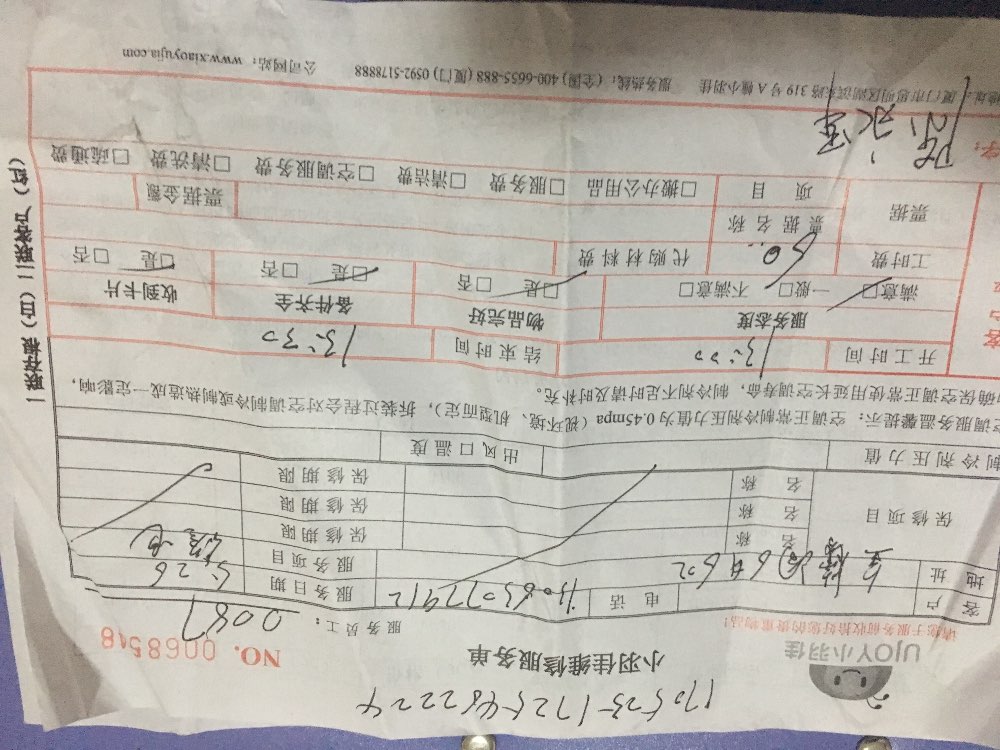 170525-1725482224
UJOY小羽佳
小羽佳维修服务单
NO. 0068518
请您于服务前收拾好您的贵重物品！
服务员工： 0087
客 户 电 话 服务日期 5.26
地 址 服务项目
保修项目 名 称 保修期限
名 称 保修期限
名 称 保修期限
制冷剂压力值 出风口温度
空调服务温馨提示：空调正常制冷剂压力值为0.45mpa（视环境、机型而定），拆装过程会对空调制冷或制热造成一定影响，
为确保空调正常使用延长空调寿命，制冷剂不足时请及时补充。
开工时间 13:00 结束时间 13:30
服务态度 物品完好 备件齐全 收到卡片
满意□ 一般□ 不满意□ □是 □否 □是 □否 □是 □否
工时费 60 代购材料费
票据 票据名称 票据金额
项 目 □搬办公用品 □服务费 □清洁费 □空调服务费 □清洗费 □疏通费
字：
厦门市思明区湖滨东路319号A幢小羽佳 服务热线：（全国）400-6655-888（厦门）0592-5178888 公司网站：www.xiaoyujia.com
一联存根（白）二联客户（红）